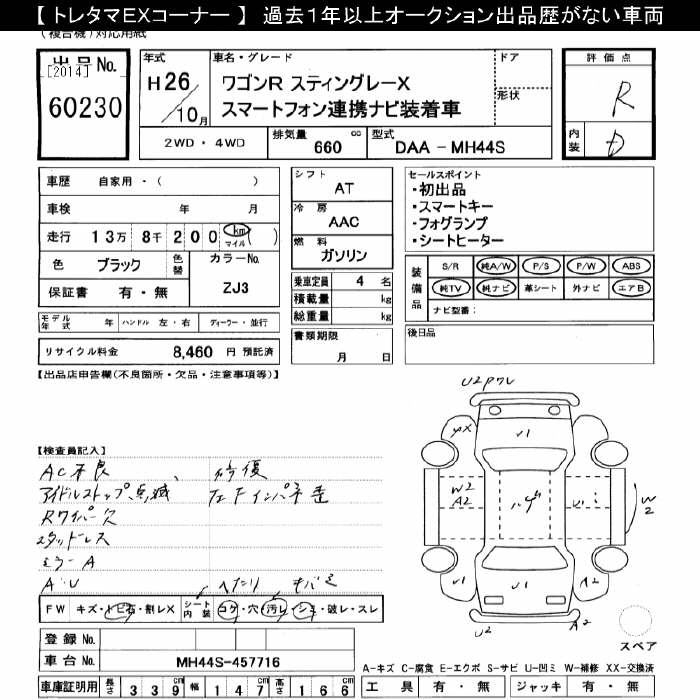 【 トレタマEXコーナー 】 過去１年以上オークション出品歴がない車両
(複合機)対応用紙
出品No.
[2014]
60230
年式
H26
/10月
車名・グレード
ワゴンR スティングレーX
スマートフォン連携ナビ装着車
ドア
形状
2WD ・ 4WD
排気量
660 cc
型式
DAA - MH44S
評価点
R
内装
D
車歴 自家用・( )
車検 年 月
走行 13万 8千 200 km マイル ( )
色 ブラック 色替
カラーNo.
ZJ3
保証書 有・無
モデル年式 年 ハンドル 左・右 ディーラー・並行
リサイクル料金 8,460 円 預託済
シフト
AT
冷房
AAC
燃料
ガソリン
乗車定員 4 名
積載量 kg
総重量 kg
書類期限
月 日
セールスポイント
・初出品
・スマートキー
・フォグランプ
・シートヒーター
装備品
S/R 純A/W P/S P/W ABS
純TV 純ナビ 革シート 外ナビ エアB
ナビ型番:
後日品
【出品店申告欄(不良箇所・欠品・注意事項等)】
【検査員記入】
AC不良、
アイドルストップ点滅
Rワイパー欠
スタッドレス
ミラーA
A・U
修復
左Fインパネ歪
へたり
キバミ
FW キズ・トビ石・割レX
シート内装 コゲ・穴・汚レ・シミ・破レ・スレ
登録No.
車台No. MH44S-457716
車庫証明用 長さ 339cm 幅 147cm 高さ 166cm
U2ワレ
XX
U1
W2
A2
ハゲ
U1
W2
U1
U1
A2
U2
A2
スペア
A-キズ C-腐食 E-エクボ S-サビ U-凹ミ W-補修 XX-交換済
工具 有・無 ジャッキ 有・無